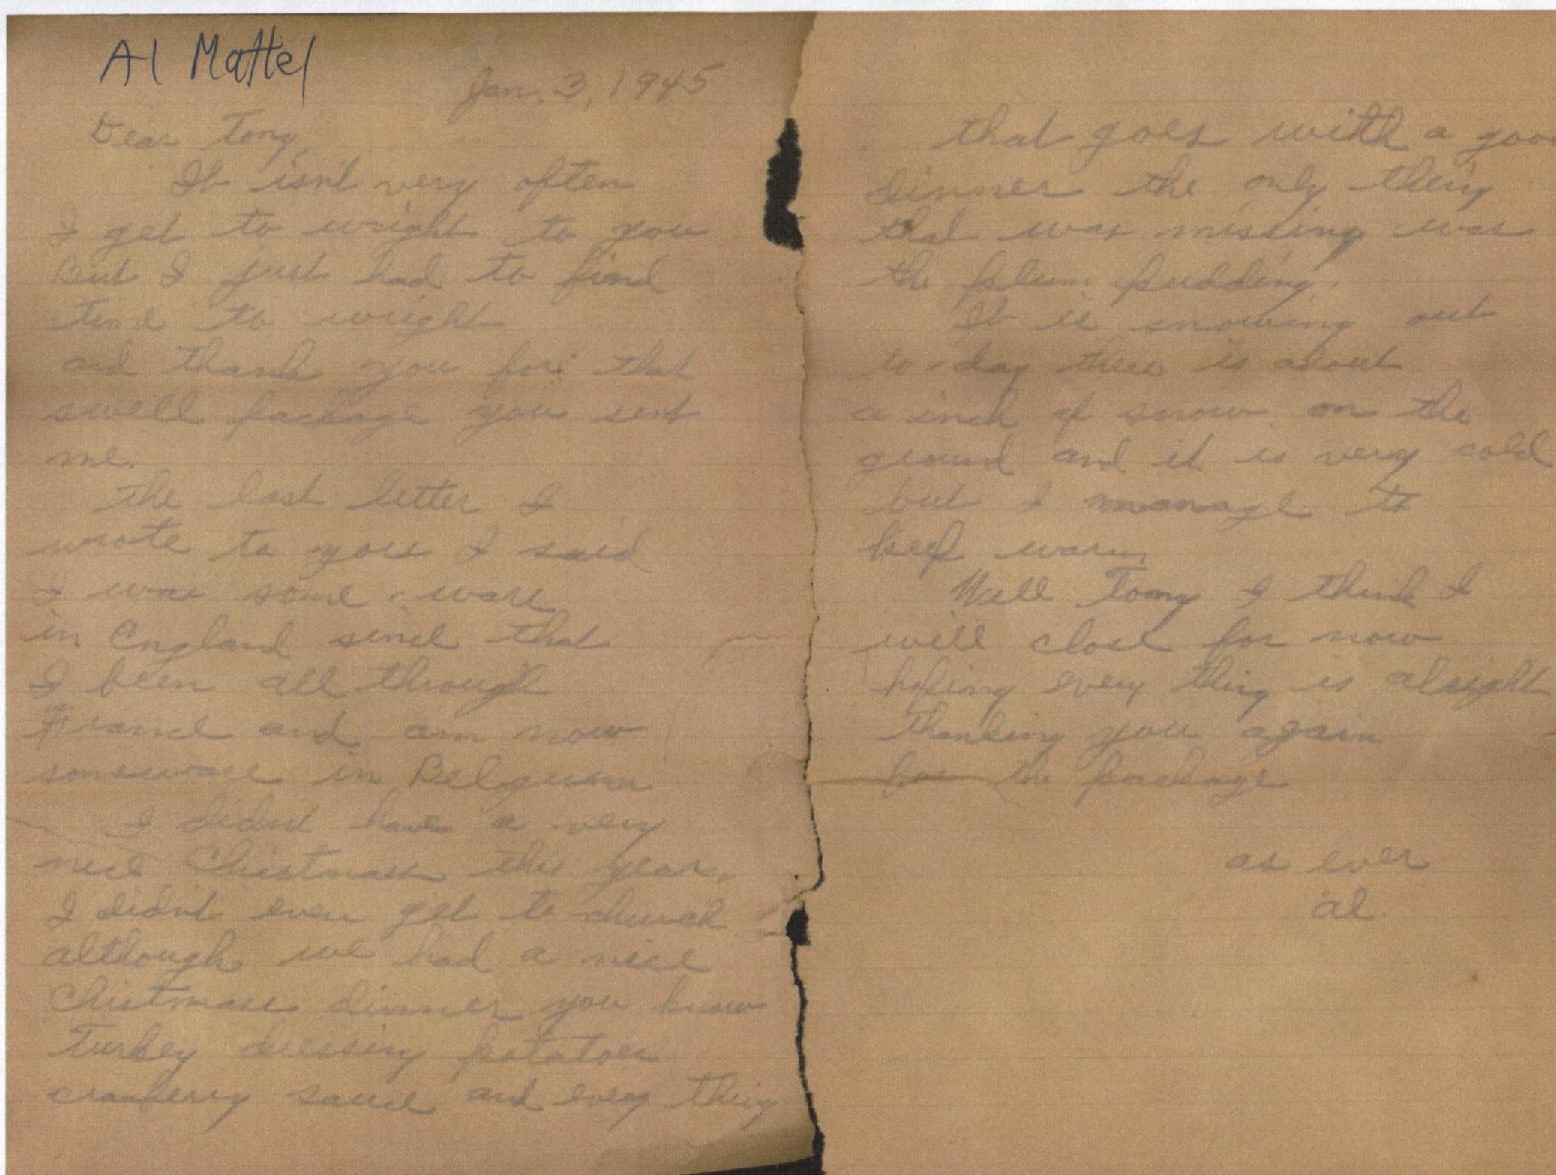 Al Mattel
Jan. 3, 1945
Dear Tony,
It isn't very often
I get to wright to you
but I just had to find
time to wright
and thank you for that
swell package you sent
me.
the last letter I
wrote to you I said
I was some ware
in England since that
I been all through
France and am now
someware in Belguim
I didnt have a very
nice Chistmass this year,
I didnt even get to church
although we had a nice
Chistmass dinner you know
Turkey dressing potatoes
cranberry sauce and every thing
that goes with a good
dinner the only thing
that was missing was
the plum pudding.
It is snowing out
to-day there is about
a inch of snow on the
ground and it is very cold
but I manage to
keep warm
Well Tony I think I
will close for now
hoping every thing is alright
thanking you again
for the package
as ever
al.